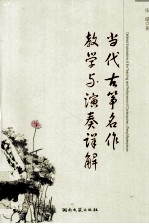 当代古筝名作
教学与演奏详解
湖南文艺出版社